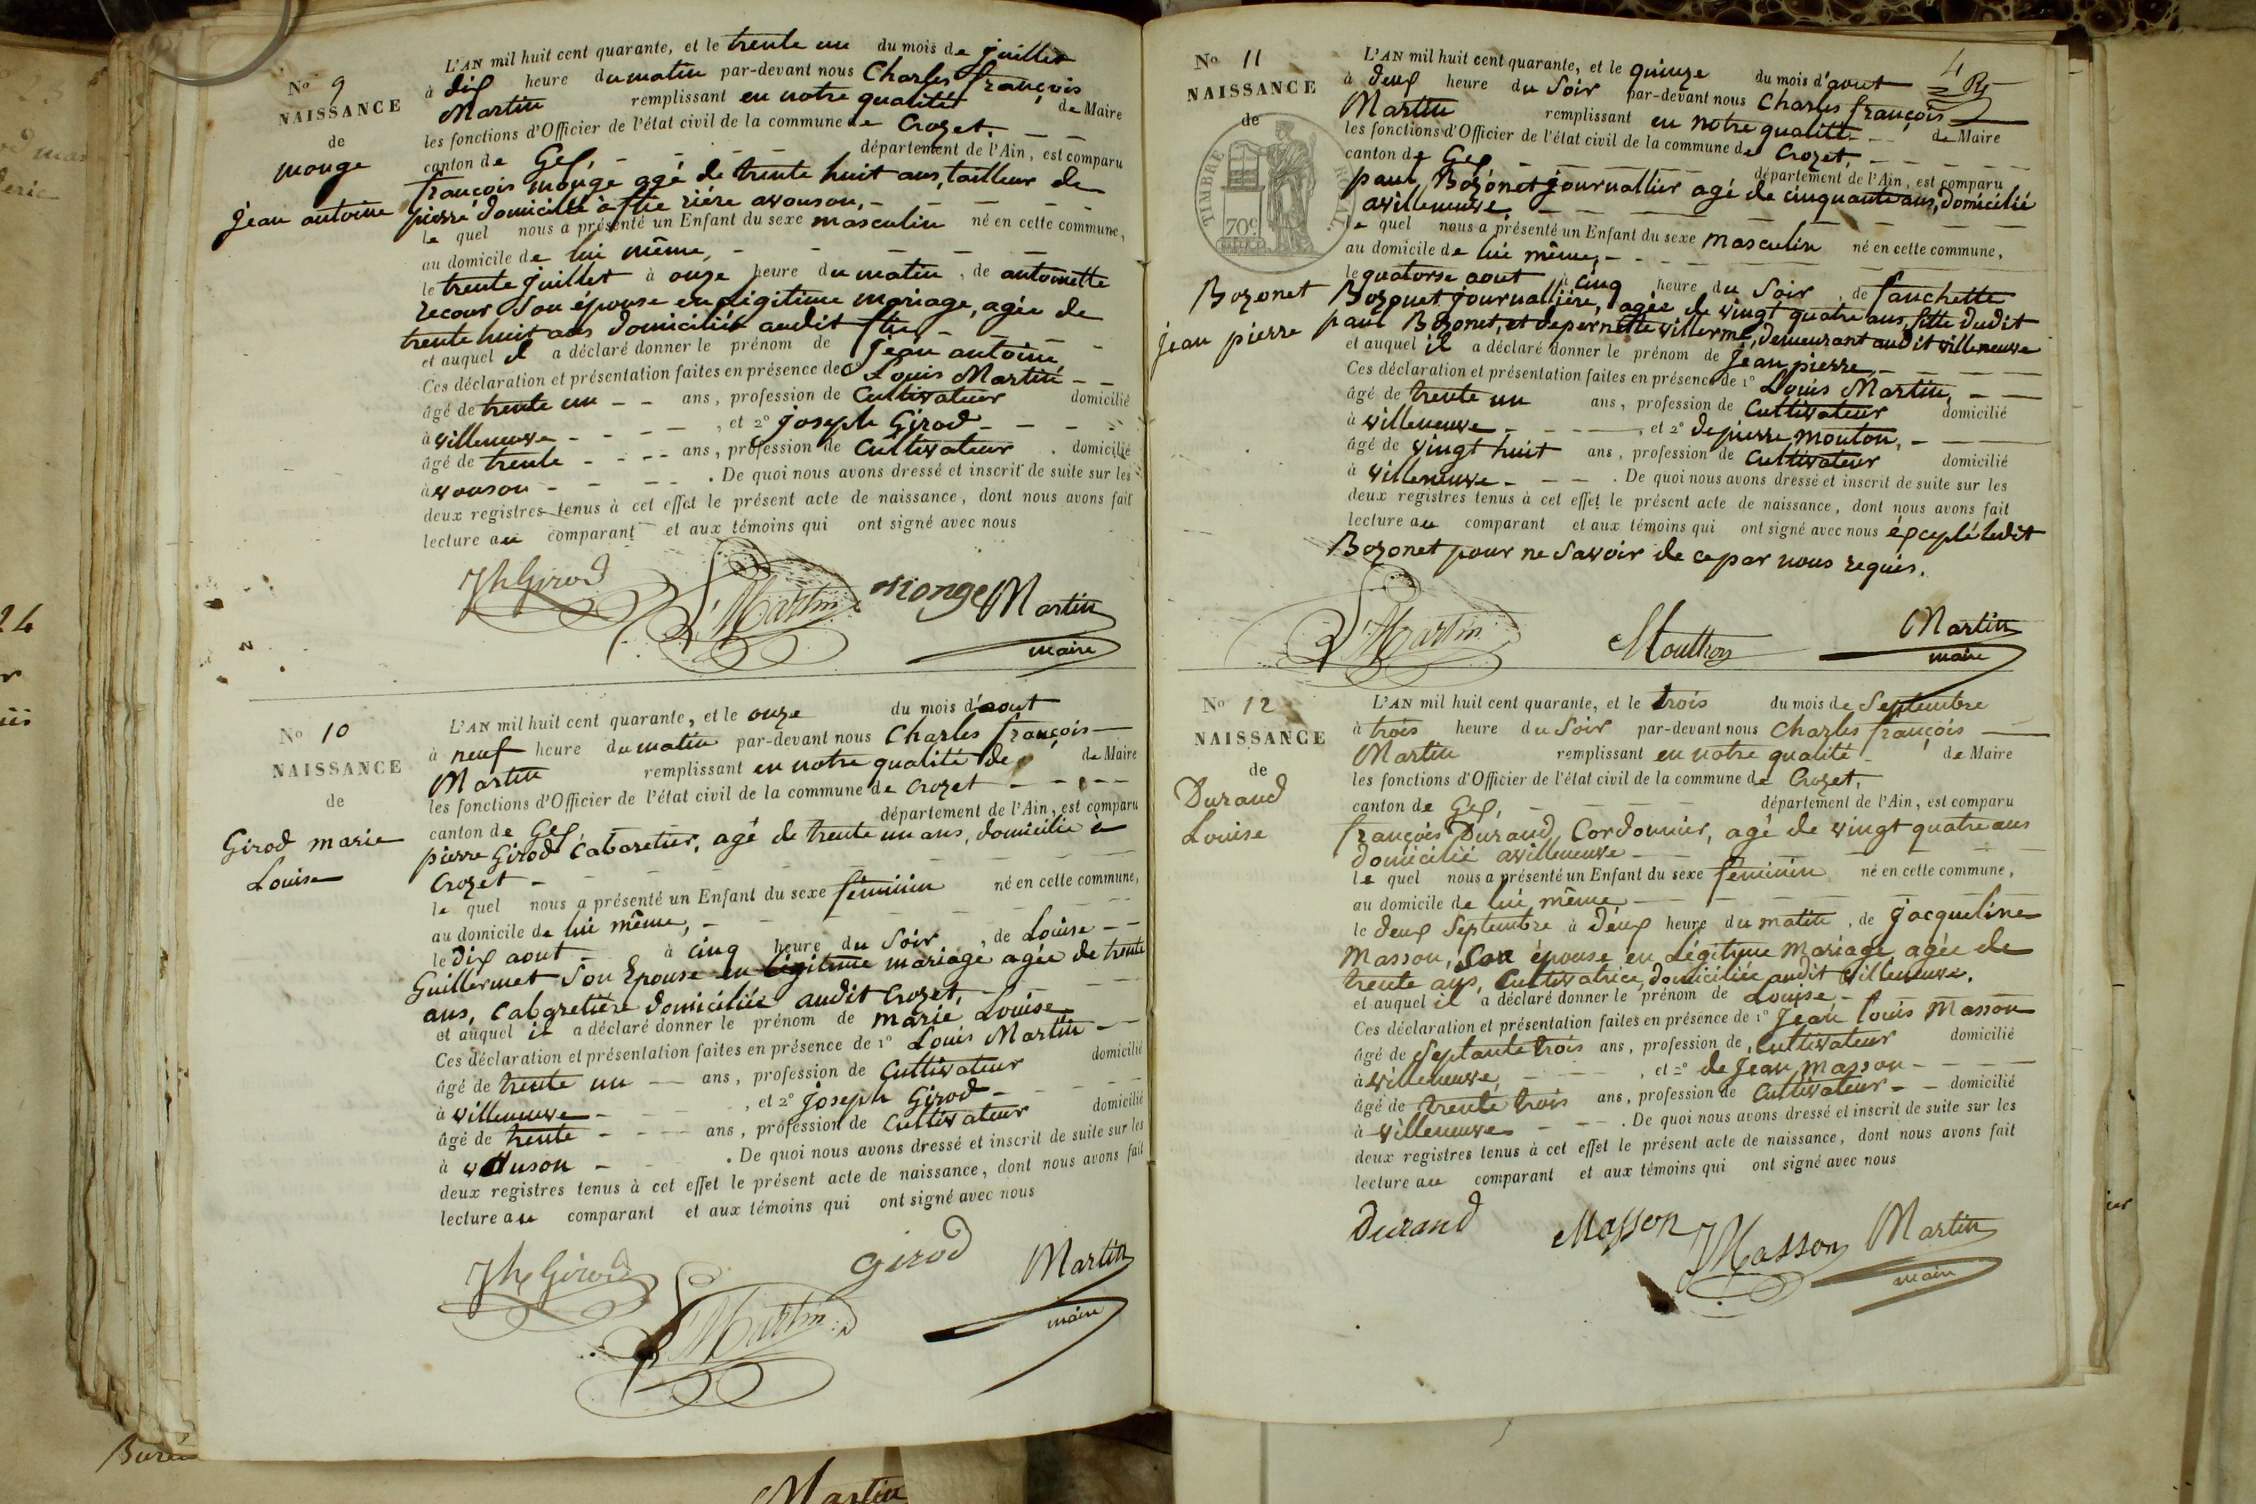 No 9
NAISSANCE
de
monge
jean antoine
L'AN mil huit cent quarante, et le trente un du mois de juillet
à dix heure du matin par-devant nous Charles françois
Martin remplissant en notre qualité de Maire
les fonctions d'Officier de l'état civil de la commune de Crozet.
canton de Gex, département de l'Ain, est comparu
françois monge agé de trente huit ans, tailleur de
pierre domicilié à rière avouson,
le quel nous a présenté un Enfant du sexe masculin né en cette commune,
au domicile de lui même,
le trente juillet à onze heure du matin, de antoinette
recour son épouse en légitime mariage, agée de
trente huit ans domiciliée audit
et auquel il a déclaré donner le prénom de jean antoine
Ces déclaration et présentation faites en présence de Louis Martin
âgé de trente un ans, profession de Cultivateur domicilié
à villeneuve, et 2º joseph Girod
âgé de trente ans, profession de Cultivateur domicilié
à vouson. De quoi nous avons dressé et inscrit de suite sur les
deux registres tenus à cet effet le présent acte de naissance, dont nous avons fait
lecture au comparant et aux témoins qui ont signé avec nous
Jh Girod Martin Monge Martin
maire
No 10
NAISSANCE
de
Girod marie
Louise
L'AN mil huit cent quarante, et le onze du mois d'aout
à neuf heure du matin par-devant nous Charles françois
Martin remplissant en notre qualité de de Maire
les fonctions d'Officier de l'état civil de la commune de Crozet
canton de Gex, département de l'Ain, est comparu
pierre Girod Cabaretier, agé de trente un ans, domicilié à
Crozet
le quel nous a présenté un Enfant du sexe féminin né en cette commune,
au domicile de lui même,
le dix aout à cinq heure du Soir, de Louise
Guillermet Son Epouse en légitime mariage agée de trente
ans, Cabaretière domiciliée audit Crozet,
et auquel il a déclaré donner le prénom de marie Louise
Ces déclaration et présentation faites en présence de 1º Louis Martin
âgé de trente un ans, profession de Cultivateur domicilié
à villeneuve, et 2º joseph Girod
âgé de trente ans, profession de Cultivateur domicilié
à vouson. De quoi nous avons dressé et inscrit de suite sur les
deux registres tenus à cet effet le présent acte de naissance, dont nous avons fait
lecture au comparant et aux témoins qui ont signé avec nous
Jh Girod Martin Girod Martin
maire
4
No 11
NAISSANCE
de
TIMBRE ROYAL
70c
Bozonet
jean pierre
L'AN mil huit cent quarante, et le quinze du mois d'aout
à deux heure du Soir par-devant nous Charles françois
Martin remplissant en notre qualité de Maire
les fonctions d'Officier de l'état civil de la commune de Crozet,
canton de Gex département de l'Ain, est comparu
paul Bozonet journallier agé de cinquante ans, domicilié
a villeneuve,
le quel nous a présenté un Enfant du sexe masculin né en cette commune,
au domicile de lui même,
le quatorse aout à cinq heure du Soir, de fanchette
Bozonet journallière, agée de vingt quatre ans, fille dudit
paul Bozonet, et de pernette villerme, demeurant audit villeneuve
et auquel il a déclaré donner le prénom de jean pierre,
Ces déclaration et présentation faites en présence de 1º Louis Martin,
âgé de trente un ans, profession de Cultivateur domicilié
à villeneuve, et 2º de pierre mouton,
âgé de vingt huit ans, profession de Cultivateur domicilié
à villeneuve. De quoi nous avons dressé et inscrit de suite sur les
deux registres tenus à cet effet le présent acte de naissance, dont nous avons fait
lecture au comparant et aux témoins qui ont signé avec nous éxcepté ledit
Bozonet pour ne Savoir de ce par nous requis.
Martin Mouthon Martin
maire
No 12
NAISSANCE
de
Durand
Louise
L'AN mil huit cent quarante, et le trois du mois de Septembre
à trois heure du Soir par-devant nous Charles françois
Martin remplissant en notre qualité de Maire
les fonctions d'Officier de l'état civil de la commune de Crozet,
canton de Gex, département de l'Ain, est comparu
françois Durand, Cordonnier, agé de vingt quatre ans
domicilié a villeneuve
le quel nous a présenté un Enfant du sexe féminin né en cette commune,
au domicile de lui même
le deux Septembre à deux heure du matin, de jacqueline
Masson, Son épouse en Légitime Mariage, agée de
trente ans, Cultivatrice, domiciliée audit villeneuve.
et auquel il a déclaré donner le prénom de Louise
Ces déclaration et présentation faites en présence de 1º jean Louis Masson
âgé de Septante trois ans, profession de Cultivateur domicilié
à villeneuve, et 2º de jean Masson
âgé de trente trois ans, profession de Cultivateur domicilié
à villeneuve. De quoi nous avons dressé et inscrit de suite sur les
deux registres tenus à cet effet le présent acte de naissance, dont nous avons fait
lecture au comparant et aux témoins qui ont signé avec nous
Durand Masson Masson Martin
maire
Martin